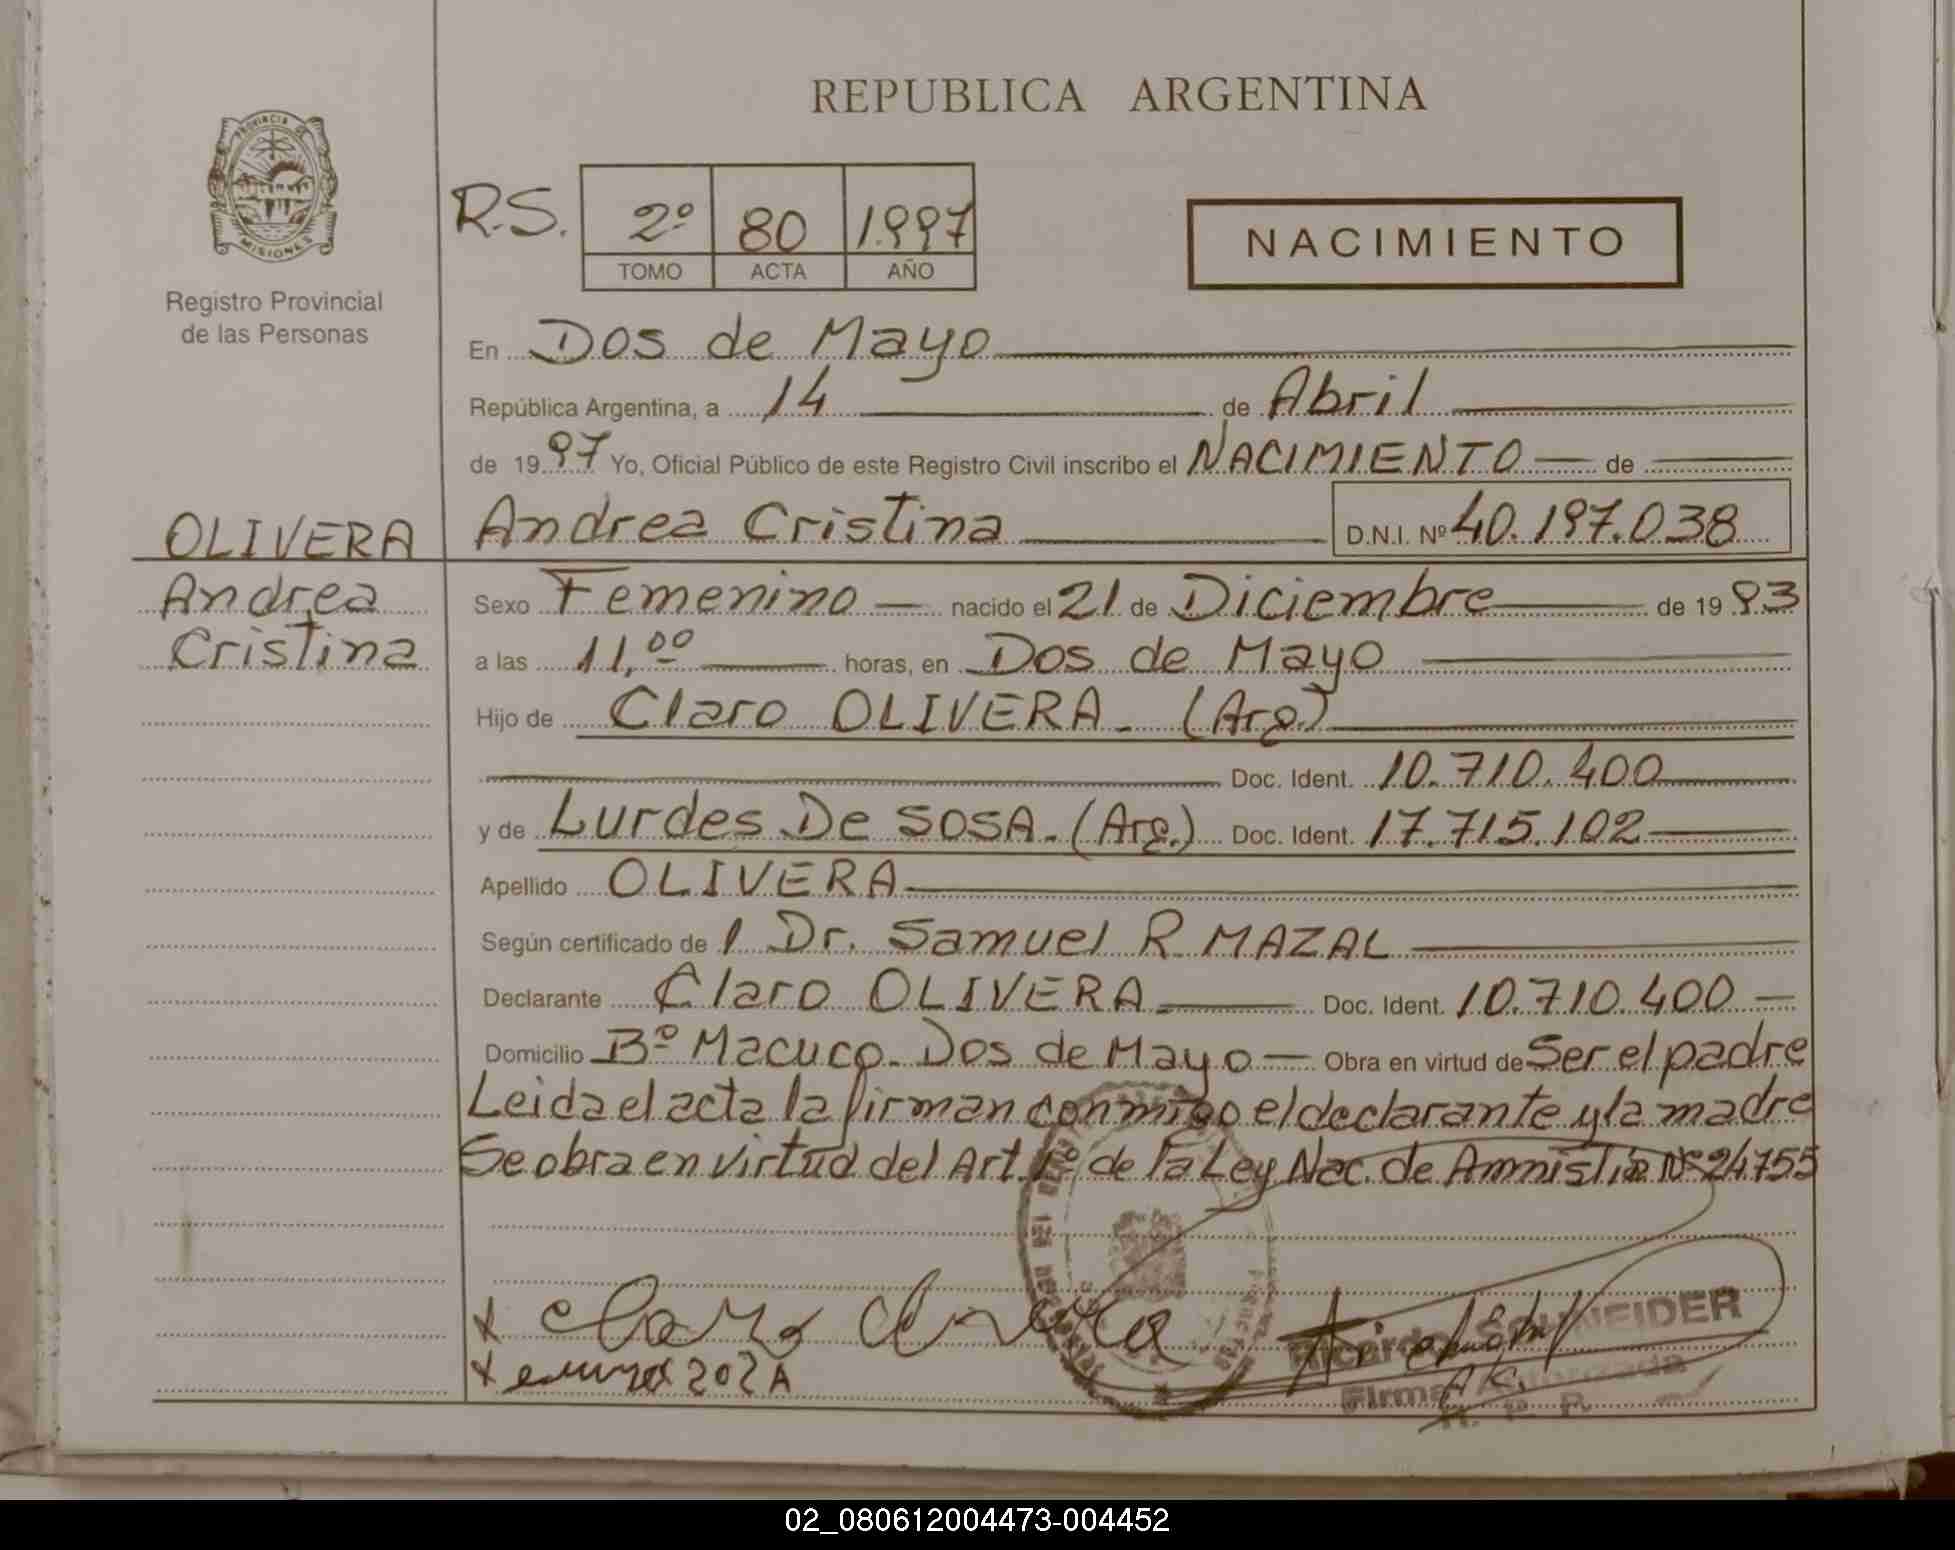 REPUBLICA ARGENTINA
PROVINCIA DE
MISIONES
Registro Provincial
de las Personas
R.S. 2º 80 1.997
TOMO ACTA AÑO
NACIMIENTO
En Dos de Mayo
República Argentina, a 14 de Abril
de 19 97 Yo, Oficial Público de este Registro Civil inscribo el NACIMIENTO de
OLIVERA Andrea Cristina D.N.I. Nº 40.197.038
Andrea Sexo Femenino nacido el 21 de Diciembre de 19 93
Cristina a las 11,00 horas, en Dos de Mayo
Hijo de Claro OLIVERA - (Arg.)
Doc. Ident. 10.710.400
y de Lurdes De SOSA - (Arg.) Doc. Ident. 17.715.102
Apellido OLIVERA
Según certificado de l Dr. Samuel R MAZAL
Declarante Claro OLIVERA Doc. Ident. 10.710.400
Domicilio Bº Macuco - Dos de Mayo Obra en virtud de Ser el padre
Leida el acta la firman conmigo el declarante y la madre
Se obra en virtud del Art. 1º de la Ley Nac. de Amnistia Nº 24.755
x Claro Olivera
Ricardo SCHNEIDER
Firma Autorizada
R. P. P.
02_080612004473-004452